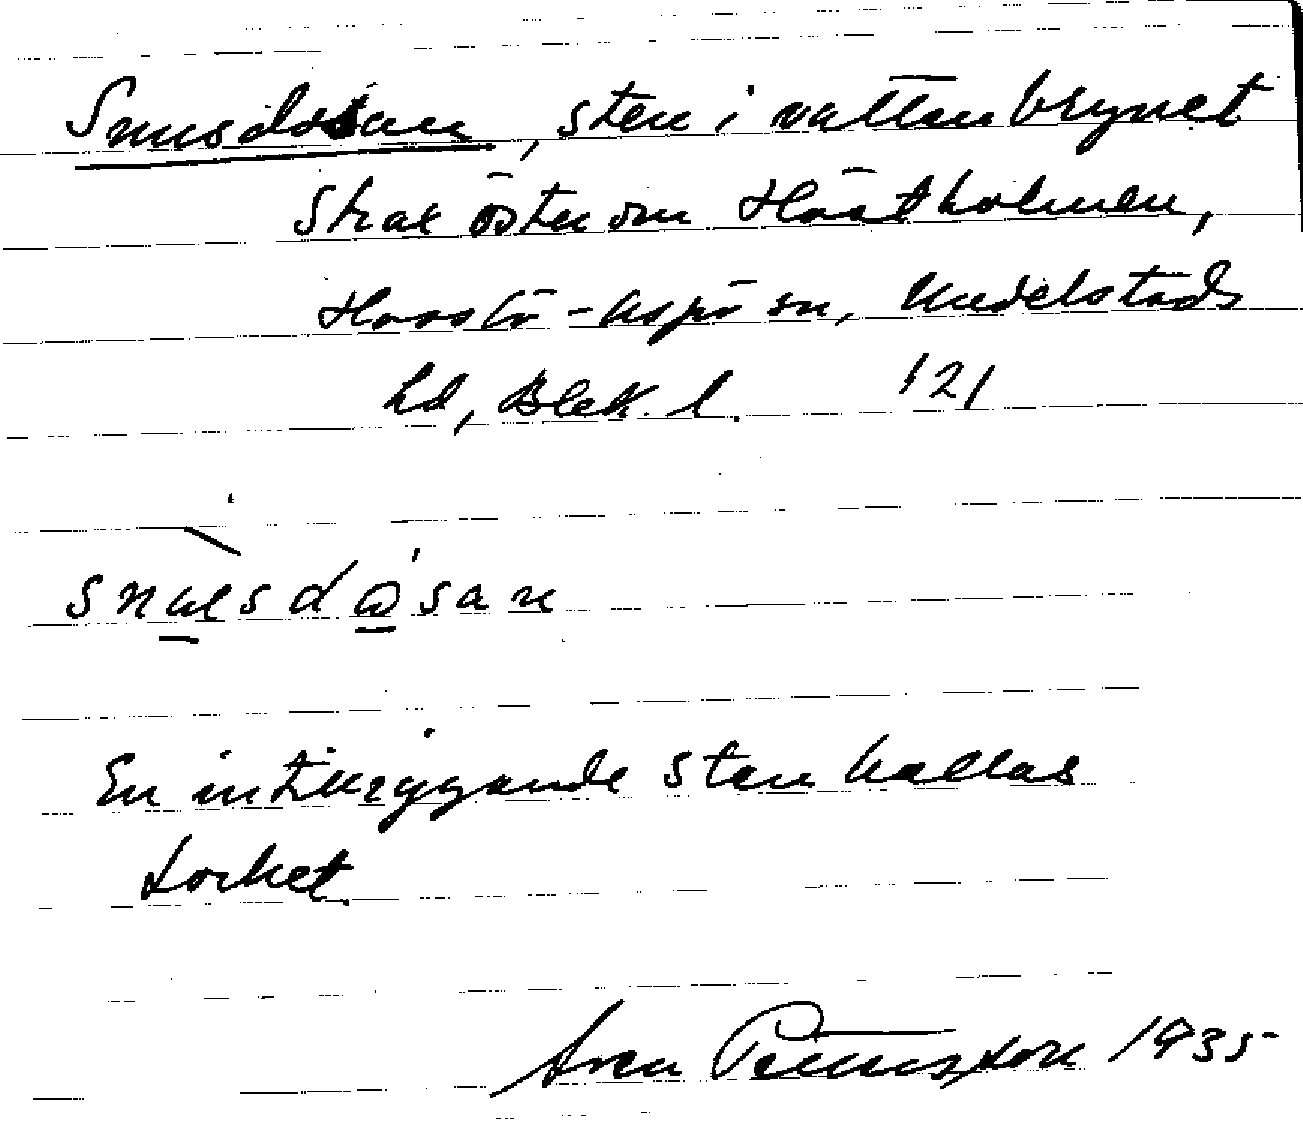 Snusdosan, sten i vattenbrynet
strax öster om Håstholmen,
Hasslö-Aspö sn, Medelstads
hd, Blek. l. 121
En intilliggande sten kallas
Locket.
Sven Petersson 1935